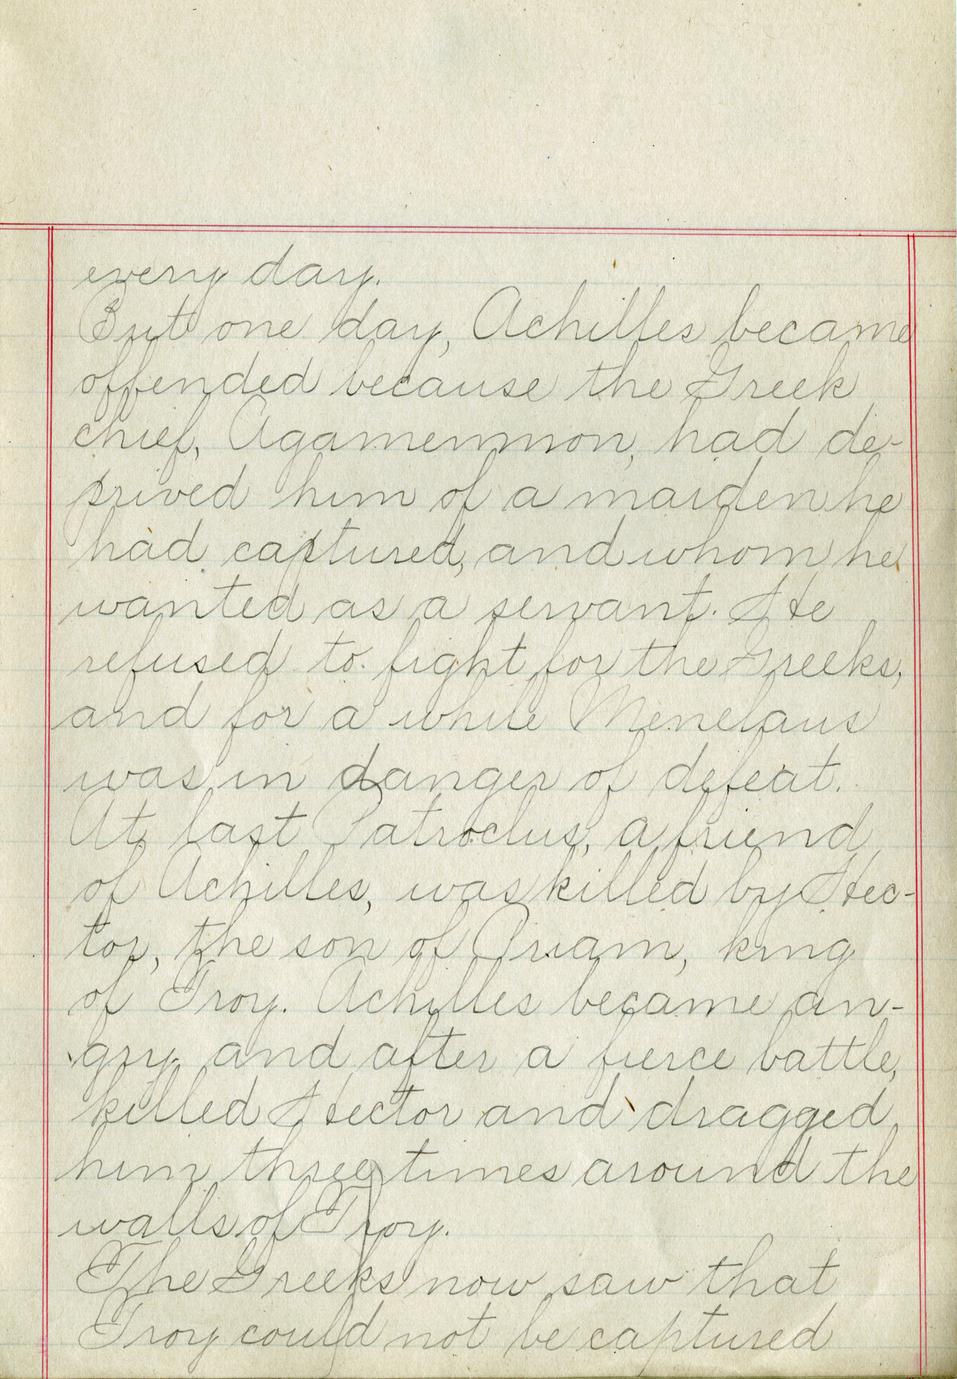 every day.
But one day, Achilles became
offended because the Greek
chief, Agamemnon, had de-
prived him of a maiden he
had captured, and whom he
wanted as a servant. He
refused to fight for the Greeks,
and for a while Menelaus
was in danger of defeat.
At last Patroclus, a friend
of Achilles, was killed by Hec-
tor, the son of Priam, king
of Troy. Achilles became an-
gry and after a fierce battle,
killed Hector and dragged
him three times around the
walls of Troy.
The Greeks now saw that
Troy could not be captured